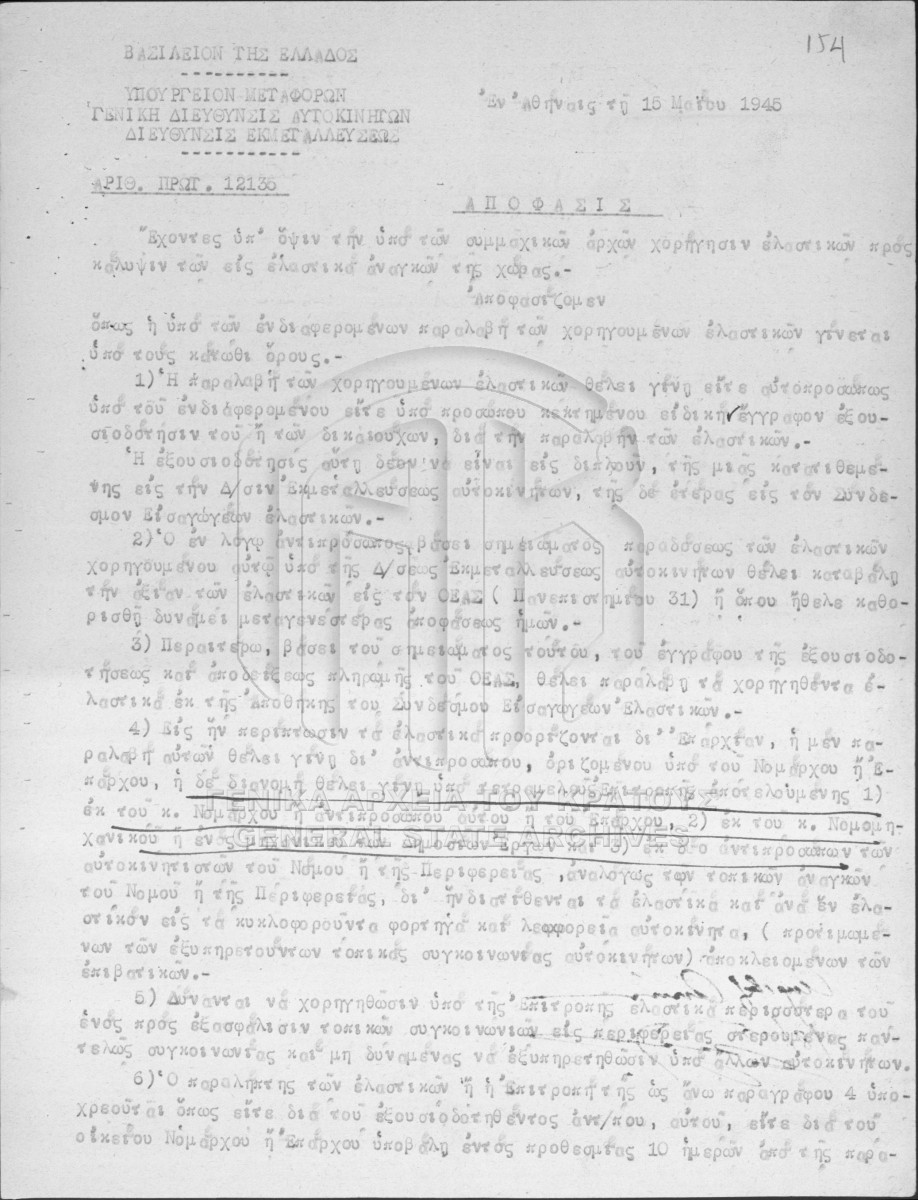 154
ΒΑΣΙΛΕΙΟΝ ΤΗΣ ΕΛΛΑΔΟΣ
ΥΠΟΥΡΓΕΙΟΝ ΜΕΤΑΦΟΡΩΝ
ΓΕΝΙΚΗ ΔΙΕΥΘΥΝΣΙΣ ΑΥΤΟΚΙΝΗΤΩΝ
ΔΙΕΥΘΥΝΣΙΣ ΕΚΜΕΤΑΛΛΕΥΣΕΩΣ
Ἐν Ἀθήναις τῇ 15 Μαΐου 1945
ΑΡΙΘ. ΠΡΩΤ. 12135
ΑΠΟΦΑΣΙΣ
Ἔχοντες ὑπ' ὄψιν τὴν ὑπὸ τῶν συμμαχικῶν ἀρχῶν χορήγησιν ἐλαστικῶν πρὸς
κάλυψιν τῶν εἰς ἐλαστικὰ ἀναγκῶν τῆς χώρας.-
Ἀποφασίζομεν
ὅπως ἡ ὑπὸ τῶν ἐνδιαφερομένων παραλαβὴ τῶν χορηγουμένων ἐλαστικῶν γίνεται
ὑπὸ τοὺς κάτωθι ὅρους.-
1) Ἡ παραλαβὴ τῶν χορηγουμένων ἐλαστικῶν θέλει γίνῃ εἴτε αὐτοπροσώπως
ὑπὸ τοῦ ἐνδιαφερομένου εἴτε ὑπὸ προσώπου κεκτημένου εἰδικὴν ἔγγραφον ἐξου-
σιοδότησιν τοῦ ἢ τῶν δικαιούχων, διὰ τὴν παραλαβὴν τῶν ἐλαστικῶν.-
Ἡ ἐξουσιοδότησις αὕτη δέον νὰ εἶναι εἰς διπλοῦν, τῆς μιᾶς κατατιθεμέ-
νης εἰς τὴν Δ/σιν Ἐκμεταλλεύσεως αὐτοκινήτων, τῆς δὲ ἑτέρας εἰς τὸν Σύνδε-
σμον Εἰσαγωγέων ἐλαστικῶν.-
2) Ὁ ἐν λόγῳ ἀντιπρόσωπος βάσει σημειώματος παραδόσεως τῶν ἐλαστικῶν
χορηγουμένου αὐτῷ ὑπὸ τῆς Δ/σεως Ἐκμεταλλεύσεως αὐτοκινήτων θέλει καταβάλῃ
τὴν ἀξίαν τῶν ἐλαστικῶν εἰς τὸν ΟΕΑΣ ( Πανεπιστημίου 31) ἢ ὅπου ἤθελε καθο-
ρισθῇ δυνάμει μεταγενεστέρας ἀποφάσεως ἡμῶν.-
3) Περαιτέρω, βάσει τοῦ σημειώματος τούτου, τοῦ ἐγγράφου τῆς ἐξουσιοδο-
τήσεως καὶ ἀποδείξεως πληρωμῆς τοῦ ΟΕΑΣ, θέλει παραλάβῃ τὰ χορηγηθέντα ἐ-
λαστικὰ ἐκ τῆς Ἀποθήκης τοῦ Συνδέσμου Εἰσαγωγέων Ἐλαστικῶν.-
4) Εἰς ἣν περίπτωσιν τὰ ἐλαστικὰ προορίζονται δι' Ἐπαρχίαν, ἡ μὲν πα-
ραλαβὴ αὐτῶν θέλει γίνῃ δι' ἀντιπροσώπου, ὁριζομένου ὑπὸ τοῦ Νομάρχου ἢ Ἐ-
πάρχου, ἡ δὲ διανομὴ θέλει γίνῃ ὑπὸ τετραμελοῦς Ἐπιτροπῆς ἀποτελουμένης 1)
ἐκ τοῦ κ. Νομάρχου ἢ ἀντιπροσώπου αὐτοῦ ἢ τοῦ Ἐπάρχου, 2) ἐκ τοῦ κ. Νομομη-
χανικοῦ ἢ ἑνὸς μηχανικοῦ τῶν Δημοσίων Ἔργων καὶ 3) ἐκ δύο ἀντιπροσώπων τῶν
αὐτοκινητιστῶν τοῦ Νομοῦ ἢ τῆς Περιφερείας, ἀναλόγως τῶν τοπικῶν ἀναγκῶν
τοῦ Νομοῦ ἢ τῆς Περιφερείας, δι' ἣν διατίθενται τὰ ἐλαστικὰ καὶ ἀνὰ ἓν ἐλα-
στικὸν εἰς τὰ κυκλοφοροῦντα φορτηγὰ καὶ λεωφορεῖα αὐτοκίνητα, ( προτιμωμέ-
νων τῶν ἐξυπηρετούντων τοπικὰς συγκοινωνίας αὐτοκινήτων) ἀποκλειομένων τῶν
ἐπιβατικῶν.-
5) Δύνανται νὰ χορηγηθῶσιν ὑπὸ τῆς Ἐπιτροπῆς ἐλαστικὰ περισσότερα τοῦ
ἑνὸς πρὸς ἐξασφάλισιν τοπικῶν συγκοινωνιῶν εἰς περιφερείας στερουμένας παν-
τελῶς συγκοινωνίας καὶ μὴ δυναμένας νὰ ἐξυπηρετηθῶσιν ὑπὸ ἄλλων αὐτοκινήτων.
6) Ὁ παραλήπτης τῶν ἐλαστικῶν ἢ ἡ Ἐπιτροπὴ τῆς ὡς ἄνω παραγράφου 4 ὑπο-
χρεοῦται ὅπως εἴτε διὰ τοῦ ἐξουσιοδοτηθέντος ἀντ/που, αὐτοῦ, εἴτε διὰ τοῦ
οἰκείου Νομάρχου ἢ Ἐπάρχου ὑποβάλῃ ἐντὸς προθεσμίας 10 ἡμερῶν ἀπὸ τῆς παρα-
ΓΕΝΙΚΑ ΑΡΧΕΙΑ ΤΟΥ ΚΡΑΤΟΥΣ
GENERAL STATE ARCHIVES